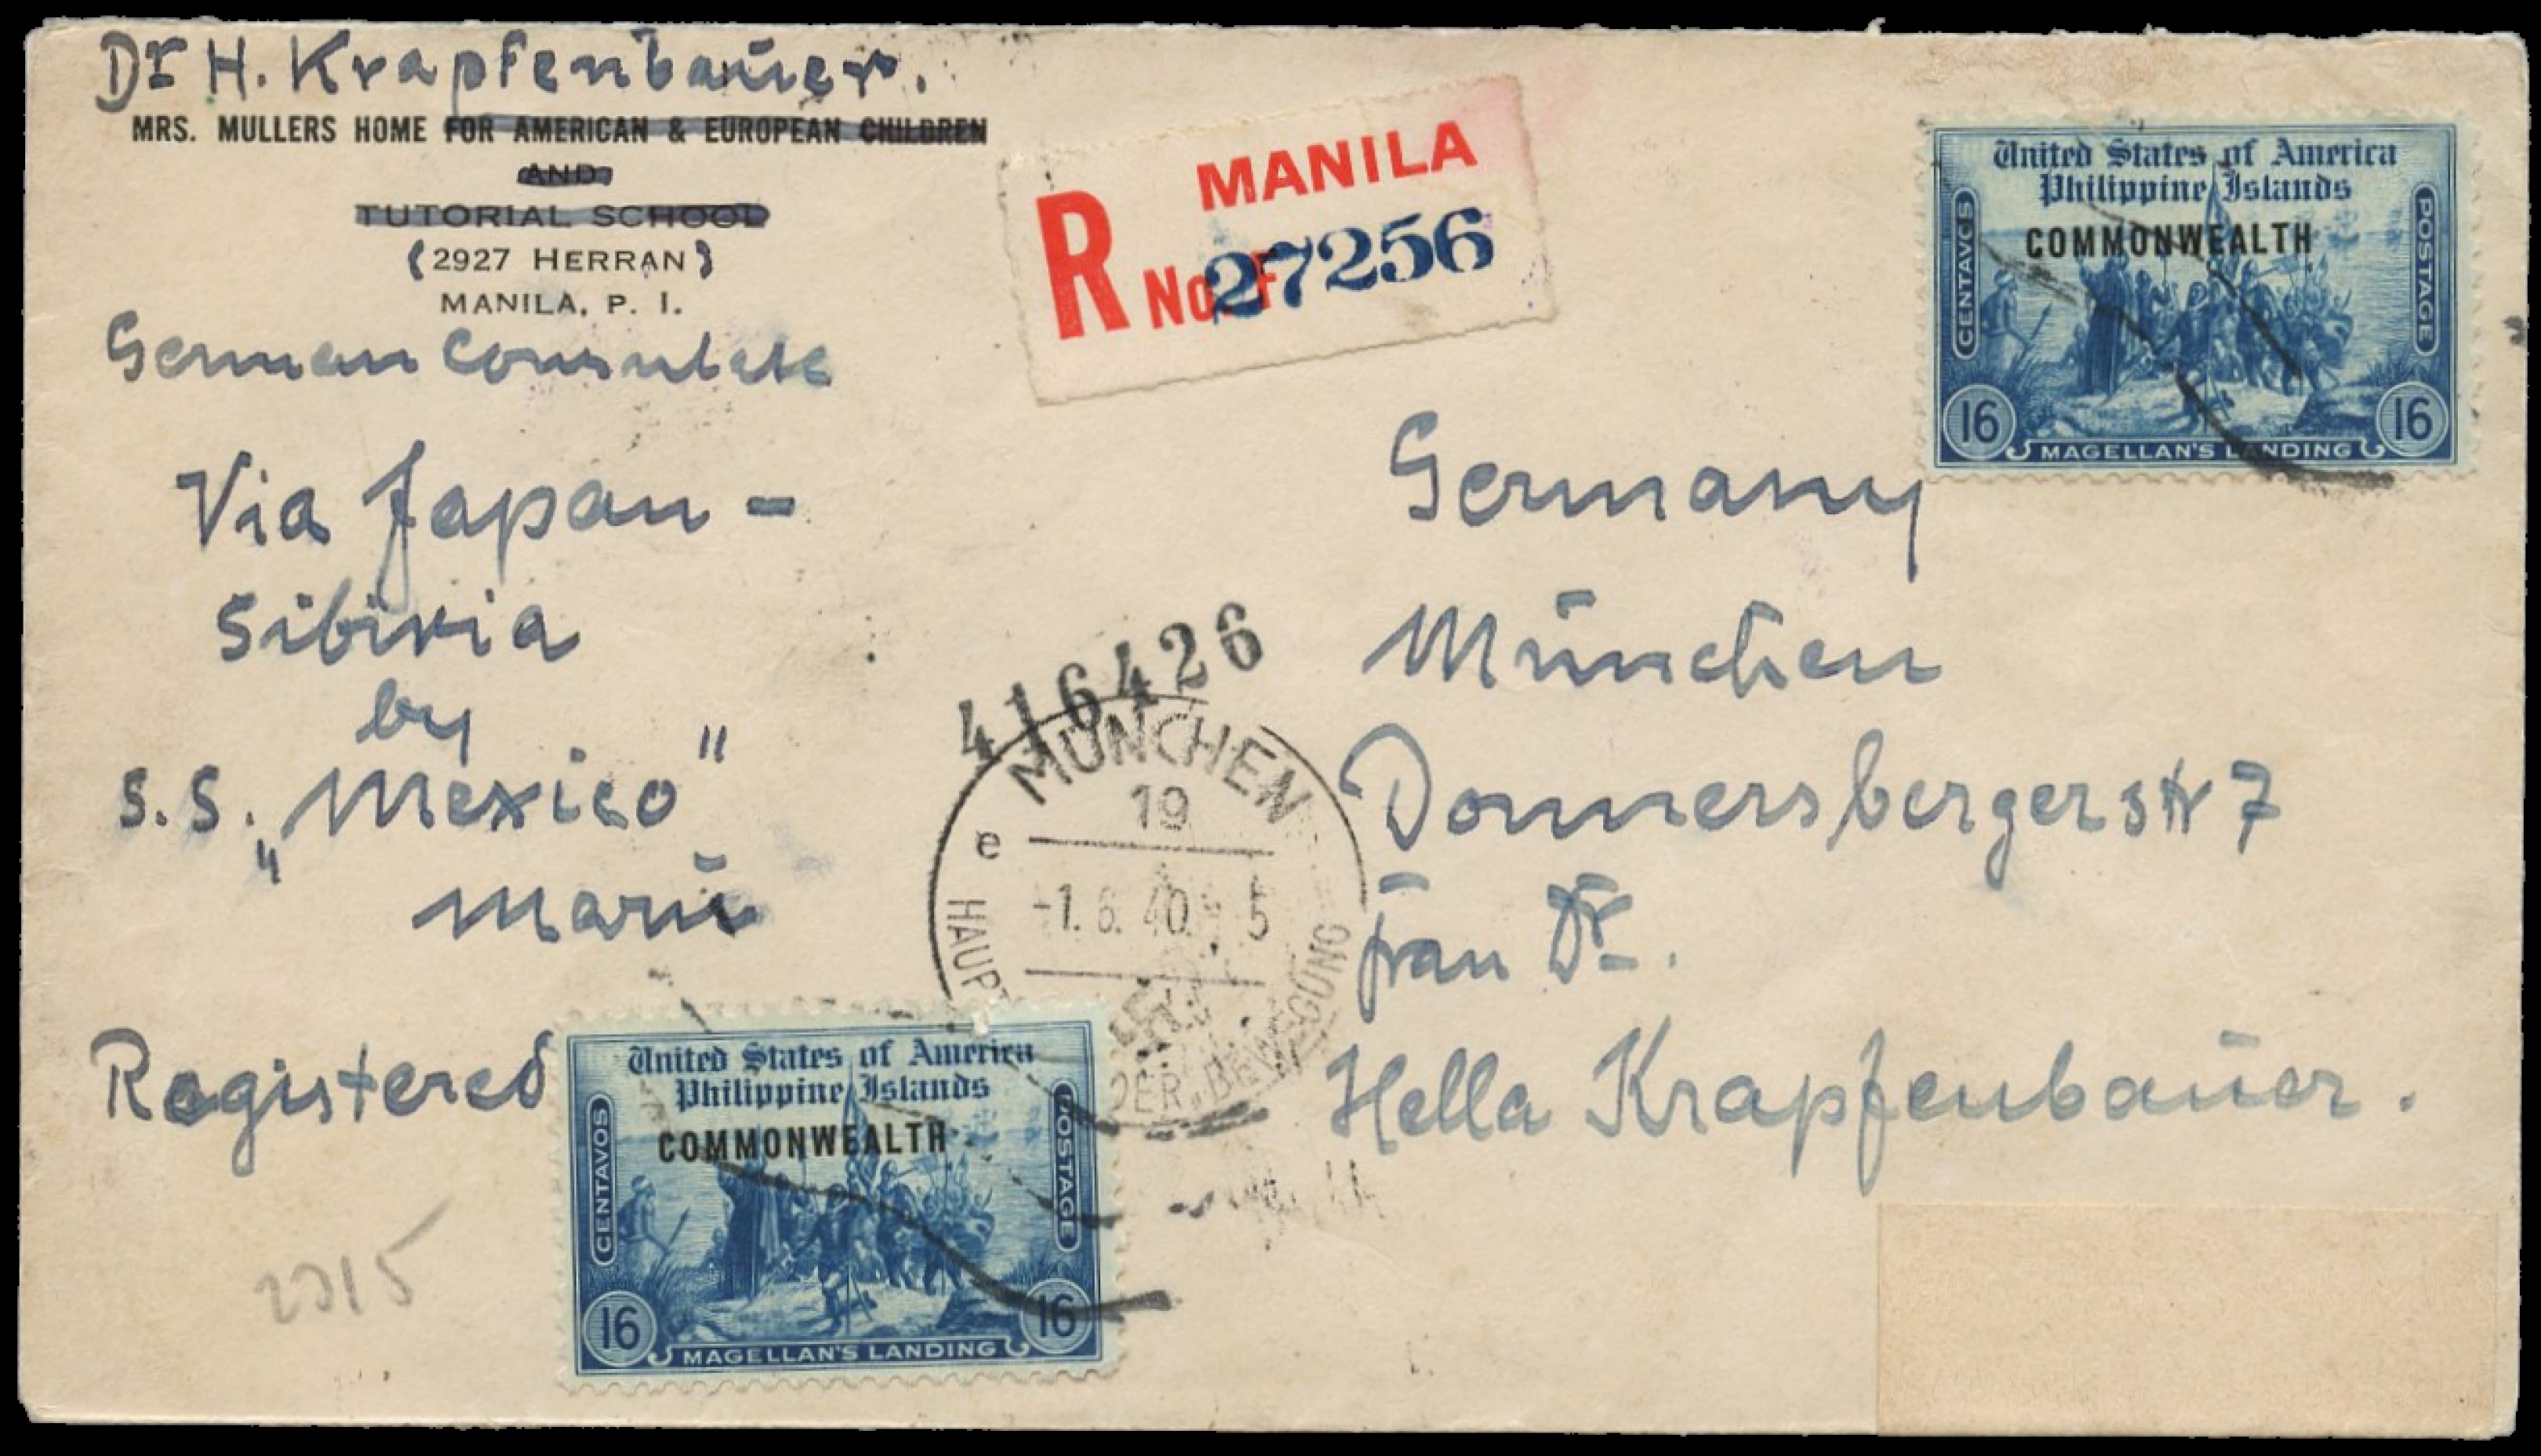 Dr H. Krapfenbaŭer.
MRS. MULLERS HOME FOR AMERICAN & EUROPEAN CHILDREN
AND
TUTORIAL SCHOOL
(2927 HERRAN)
MANILA, P. I.
German Consulate
Via Japan -
Sibiria
by
S.S. „Mexico"
marŭ
Registered
2315
MANILA
R No 27256
United States of America
Philippine Islands
COMMONWEALTH
CENTAVOS
POSTAGE
16
16
MAGELLAN'S LANDING
Germany
München
Donnersbergerstr 7
Frau Dr.
Hella Krapfenbaŭer.
416426
MÜNCHEN
19
e
-1. 6. 40. 5
HAUPT
DER BEWEGUNG
United States of America
Philippine Islands
COMMONWEALTH
CENTAVOS
POSTAGE
16
16
MAGELLAN'S LANDING